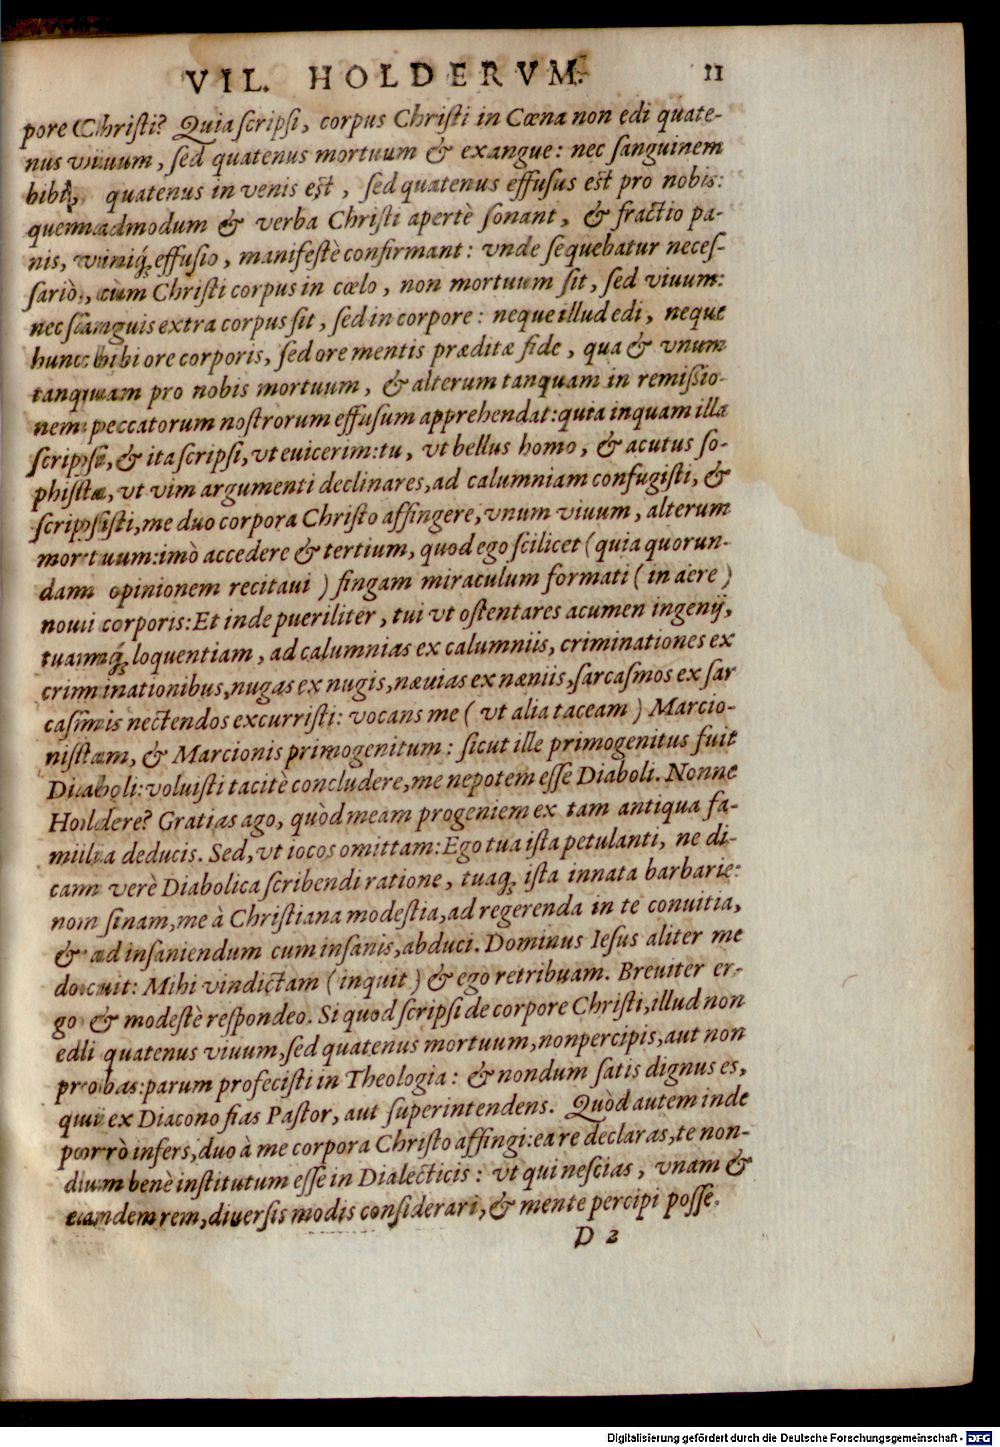 VIL. HOLDERVM. 11
pore Christi? Quia scripsi, corpus Christi in Cœna non edi quate-
nus viuum, sed quatenus mortuum & exangue: nec sanguinem
bibi, quatenus in venis est, sed quatenus effusus est pro nobis:
quemadmodum & verba Christi apertè sonant, & fractio pa-
nis, viniq́; effusio, manifestè confirmant: vnde sequebatur neces-
sariò, cùm Christi corpus in cœlo, non mortuum sit, sed viuum:
nec sanguis extra corpus sit, sed in corpore: neque illud edi, neque
hunc bibi ore corporis, sed ore mentis præditæ fide, qua & vnum
tanquam pro nobis mortuum, & alterum tanquam in remißio-
nem peccatorum nostrorum effusum apprehendat: quia inquam illa
scripsi, & ita scripsi, vt euicerim: tu, vt bellus homo, & acutus so-
phista, vt vim argumenti declinares, ad calumniam confugisti, &
scripsisti, me duo corpora Christo affingere, vnum viuum, alterum
mortuum: imò accedere & tertium, quod ego scilicet (quia quorun-
dam opinionem recitaui) fingam miraculum formati (in aëre)
noui corporis: Et inde pueriliter, tui vt ostentares acumen ingenij,
tuamq́; loquentiam, ad calumnias ex calumniis, criminationes ex
criminationibus, nugas ex nugis, næuias ex næniis, sarcasmos ex sar
casmis nectendos excurristi: vocans me (vt alia taceam) Marcio-
nistam, & Marcionis primogenitum: sicut ille primogenitus fuit
Diaboli: voluisti tacitè concludere, me nepotem esse Diaboli. Nonne
Holdere? Gratias ago, quòd meam progeniem ex tam antiqua fa-
milia deducis. Sed, vt iocos omittam: Ego tua ista petulanti, ne di-
cam verè Diabolica scribendi ratione, tuaq; ista innata barbarie:
non sinam, me à Christiana modestia, ad regerenda in te conuitia,
& ad insaniendum cum insanis, abduci. Dominus Iesus aliter me
docuit: Mihi vindictam (inquit) & ego retribuam. Breuiter er-
go & modestè respondeo. Si quod scripsi de corpore Christi, illud non
edi quatenus viuum, sed quatenus mortuum, non percipis, aut non
probas: parum profecisti in Theologia: & nondum satis dignus es,
qui ex Diacono fias Pastor, aut superintendens. Quòd autem inde
porrò infers, duo à me corpora Christo affingi: ea re declaras, te non-
dum benè institutum esse in Dialecticis: vt qui nescias, vnam &
eamdem rem, diuersis modis considerari, & mente percipi posse.
D 2
Digitalisierung gefördert durch die Deutsche Forschungsgemeinschaft - DFG